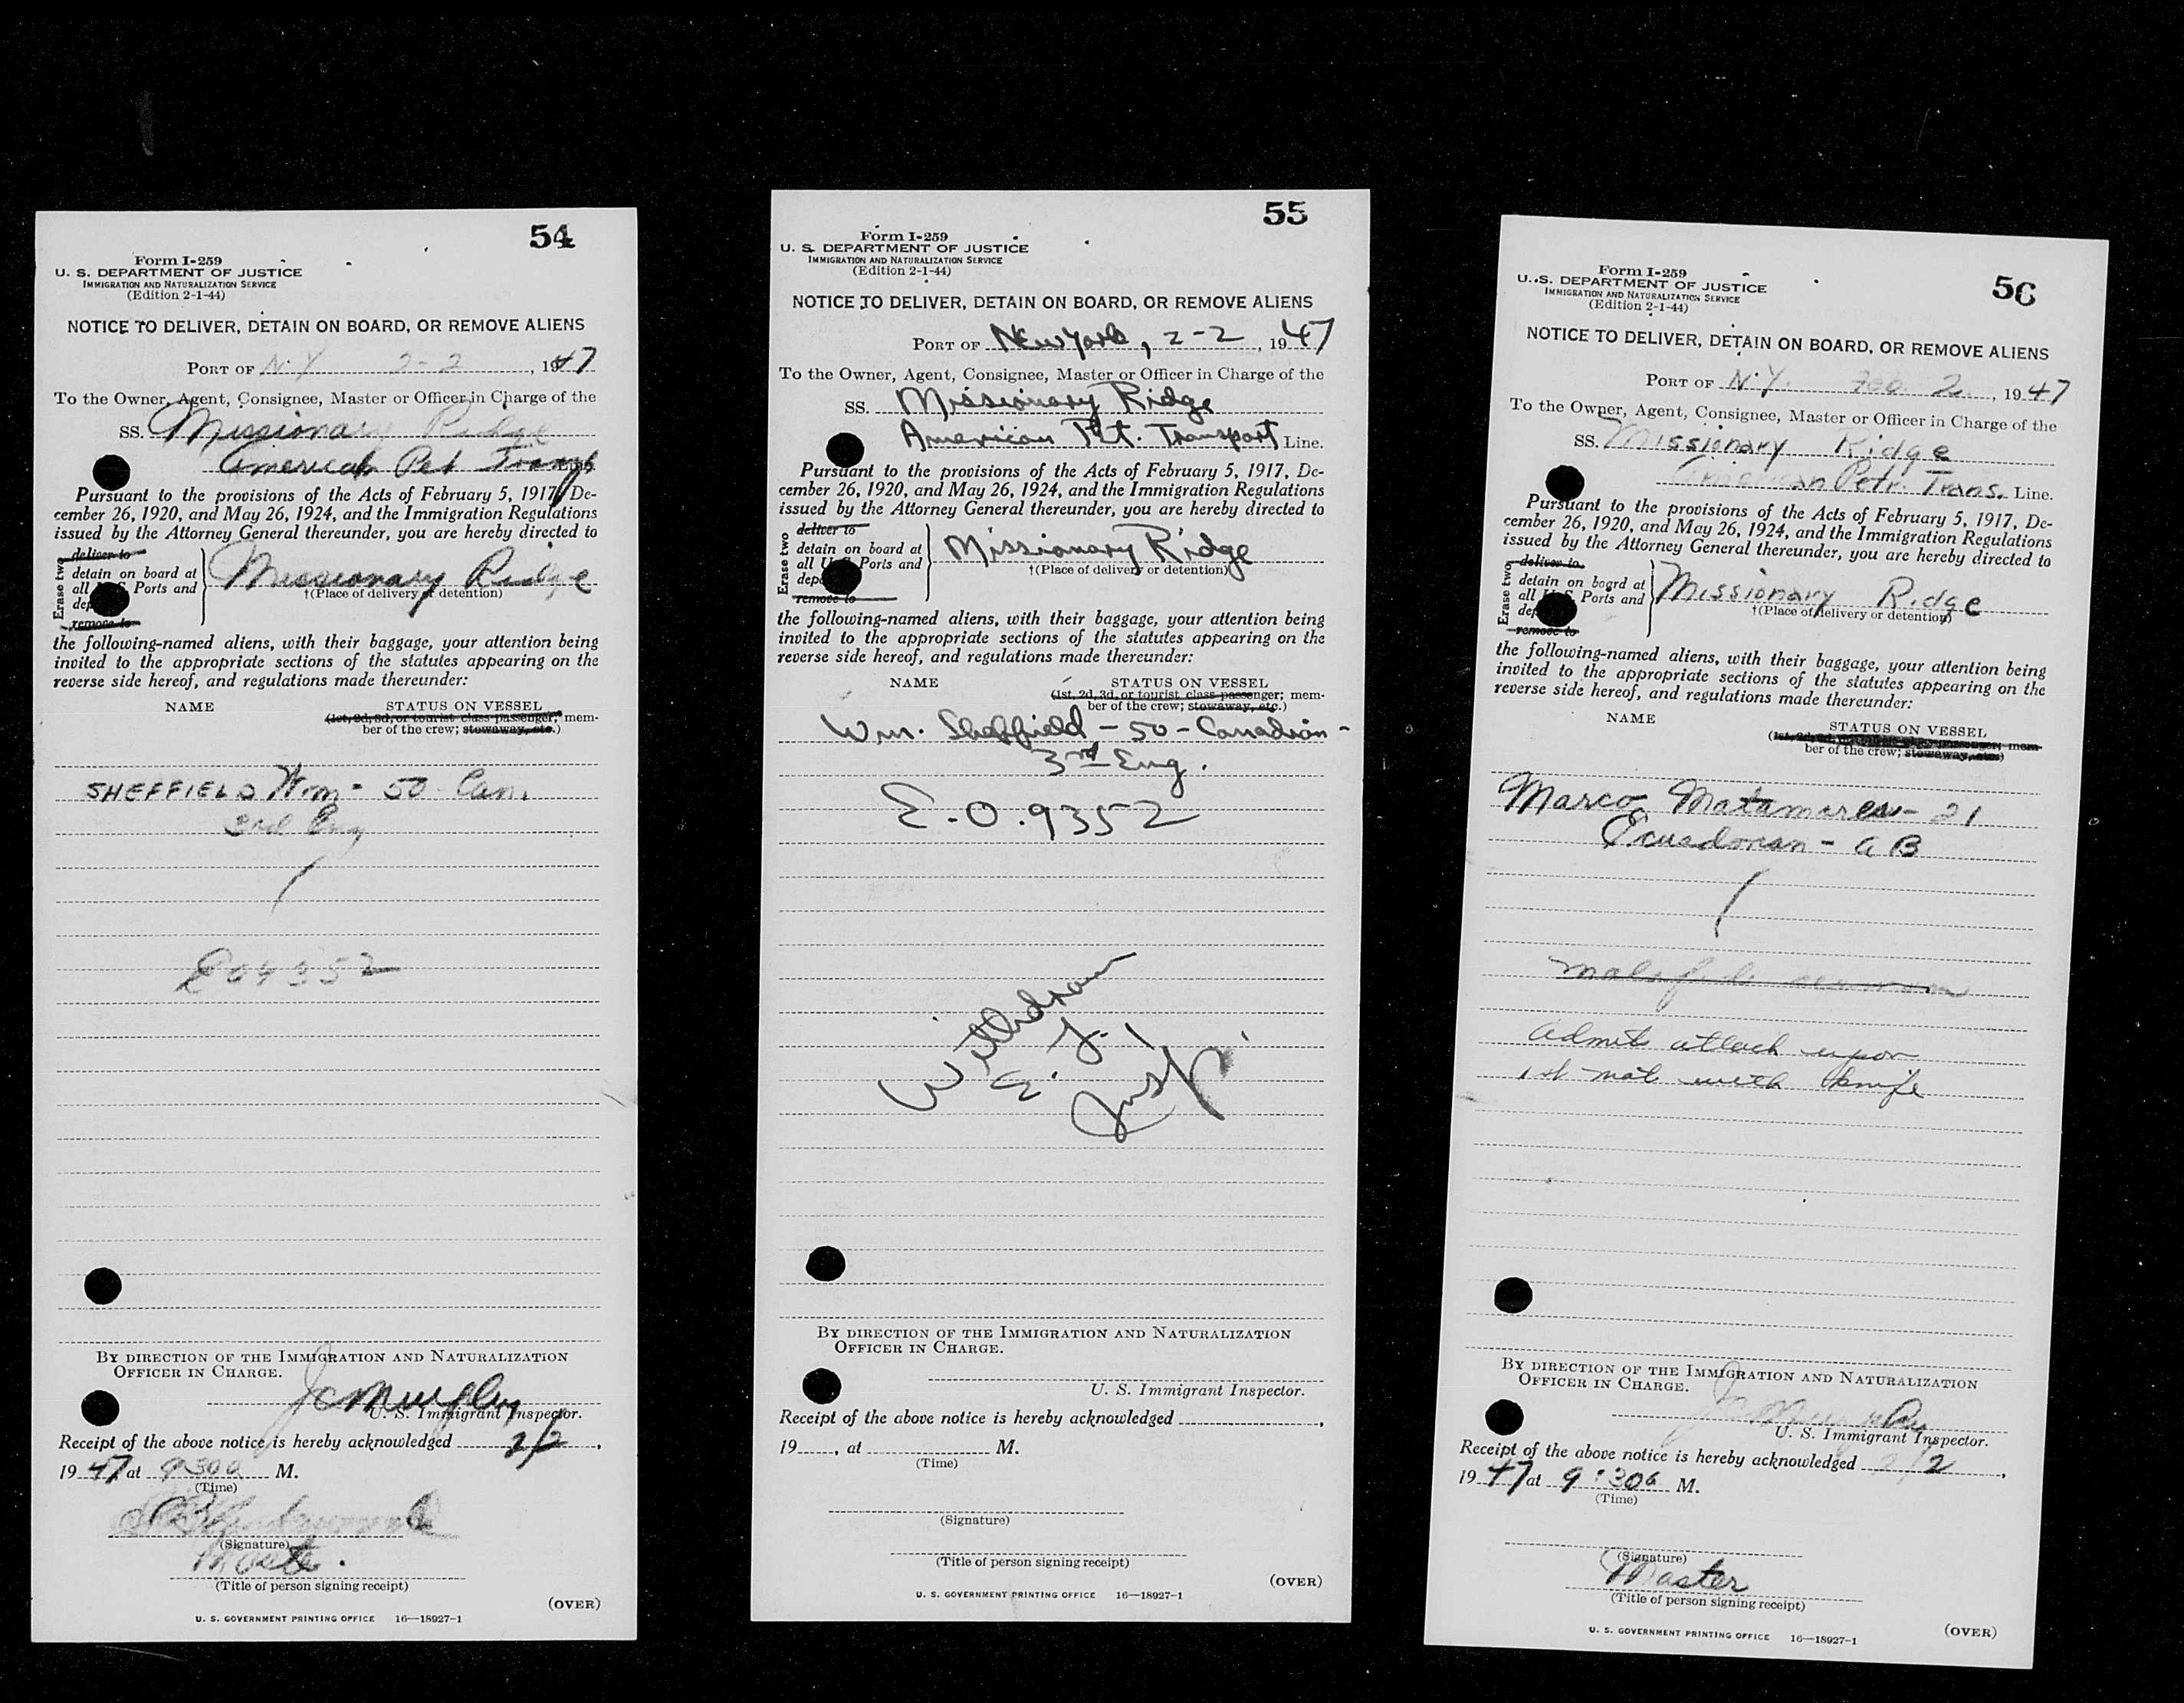 54
Form I-259
U. S. DEPARTMENT OF JUSTICE
IMMIGRATION AND NATURALIZATION SERVICE
(Edition 2-1-44)
NOTICE TO DELIVER, DETAIN ON BOARD, OR REMOVE ALIENS
PORT OF N.Y 2-2, 1947
To the Owner, Agent, Consignee, Master or Officer in Charge of the
SS. Missionary Ridge
American Pet
Pursuant to the provisions of the Acts of February 5, 1917, De-
cember 26, 1920, and May 26, 1924, and the Immigration Regulations
issued by the Attorney General thereunder, you are hereby directed to
Erase two
deliver to
detain on board at
all Ports and
remove to
Missionary Ridge
†(Place of delivery or detention)
the following-named aliens, with their baggage, your attention being
invited to the appropriate sections of the statutes appearing on the
reverse side hereof, and regulations made thereunder:
NAME STATUS ON VESSEL
(1st, 2d, 3d, or tourist class passenger; mem-
ber of the crew; stowaway, etc.)
SHEFFIELD Wm - 50 Can.
3rd Eng
By DIRECTION OF THE IMMIGRATION AND NATURALIZATION
OFFICER IN CHARGE.
U. S. Immigrant Inspector.
Receipt of the above notice is hereby acknowledged 2/2,
1947 at 930a M.
(Time)
(Signature)
Master.
(Title of person signing receipt)
(OVER)
U. S. GOVERNMENT PRINTING OFFICE 16—18927-1
55
Form I-259
U. S. DEPARTMENT OF JUSTICE
IMMIGRATION AND NATURALIZATION SERVICE
(Edition 2-1-44)
NOTICE TO DELIVER, DETAIN ON BOARD, OR REMOVE ALIENS
PORT OF New York, 2-2, 1947
To the Owner, Agent, Consignee, Master or Officer in Charge of the
SS. Missionary Ridge
American Pet. Transport Line.
Pursuant to the provisions of the Acts of February 5, 1917, De-
cember 26, 1920, and May 26, 1924, and the Immigration Regulations
issued by the Attorney General thereunder, you are hereby directed to
Erase two
deliver to
detain on board at
all U Ports and
remove to
Missionary Ridge
†(Place of delivery or detention)
the following-named aliens, with their baggage, your attention being
invited to the appropriate sections of the statutes appearing on the
reverse side hereof, and regulations made thereunder:
NAME STATUS ON VESSEL
(1st, 2d, 3d, or tourist class passenger; mem-
ber of the crew; stowaway, etc.)
Wm. Sheffield - 50 - Canadian -
3rd Eng.
E.O. 9352
Withdrawn
E. J.
Insp.
By DIRECTION OF THE IMMIGRATION AND NATURALIZATION
OFFICER IN CHARGE.
U. S. Immigrant Inspector.
Receipt of the above notice is hereby acknowledged ,
19 , at M.
(Time)
(Signature)
(Title of person signing receipt)
(OVER)
U. S. GOVERNMENT PRINTING OFFICE 16—18927-1
56
Form I-259
U. S. DEPARTMENT OF JUSTICE
IMMIGRATION AND NATURALIZATION SERVICE
(Edition 2-1-44)
NOTICE TO DELIVER, DETAIN ON BOARD, OR REMOVE ALIENS
PORT OF N.Y. Feb. 2, 1947
To the Owner, Agent, Consignee, Master or Officer in Charge of the
SS. Missionary Ridge
American Petr. Trans. Line.
Pursuant to the provisions of the Acts of February 5, 1917, De-
cember 26, 1920, and May 26, 1924, and the Immigration Regulations
issued by the Attorney General thereunder, you are hereby directed to
Erase two
deliver to
detain on board at
all U. S. Ports and
remove to
Missionary Ridge
†(Place of delivery or detention)
the following-named aliens, with their baggage, your attention being
invited to the appropriate sections of the statutes appearing on the
reverse side hereof, and regulations made thereunder:
NAME STATUS ON VESSEL
ber of the crew; stowaway, etc.)
Marco Matamares - 21
Ecuadorian - AB
Admits attack upon
1st mate with knife
By DIRECTION OF THE IMMIGRATION AND NATURALIZATION
OFFICER IN CHARGE.
U. S. Immigrant Inspector.
Receipt of the above notice is hereby acknowledged 2/2,
1947 at 9:30a M.
(Time)
(Signature)
Master
(Title of person signing receipt)
(OVER)
U. S. GOVERNMENT PRINTING OFFICE 16—18927-1